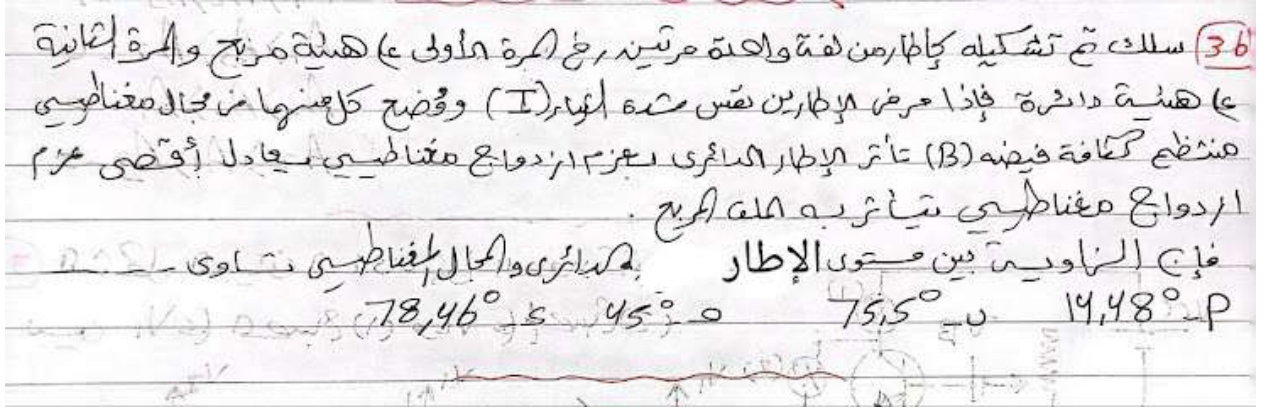 36 سلك تم تشكيله كإطار من لفة واحدة مرتين في المرة الأولى على هيئة مربع والمرة الثانية
على هيئة دائرة فإذا مر في الإطارين نفس شدة التيار (I) ووضع كل منهما في مجال مغناطيسي
منتظم كثافة فيضه (B) تأثر الإطار الدائرى بعزم ازدواج مغناطيسي يعادل أقصى عزم
ازدواج مغناطيسي يتأثر به الملف المربع .
فإن الزاوية بين مستوى الإطار الدائرى والمجال المغناطيسي تساوى
P- 14,48° ب- 75,5° ح- 45° د- 78,46°